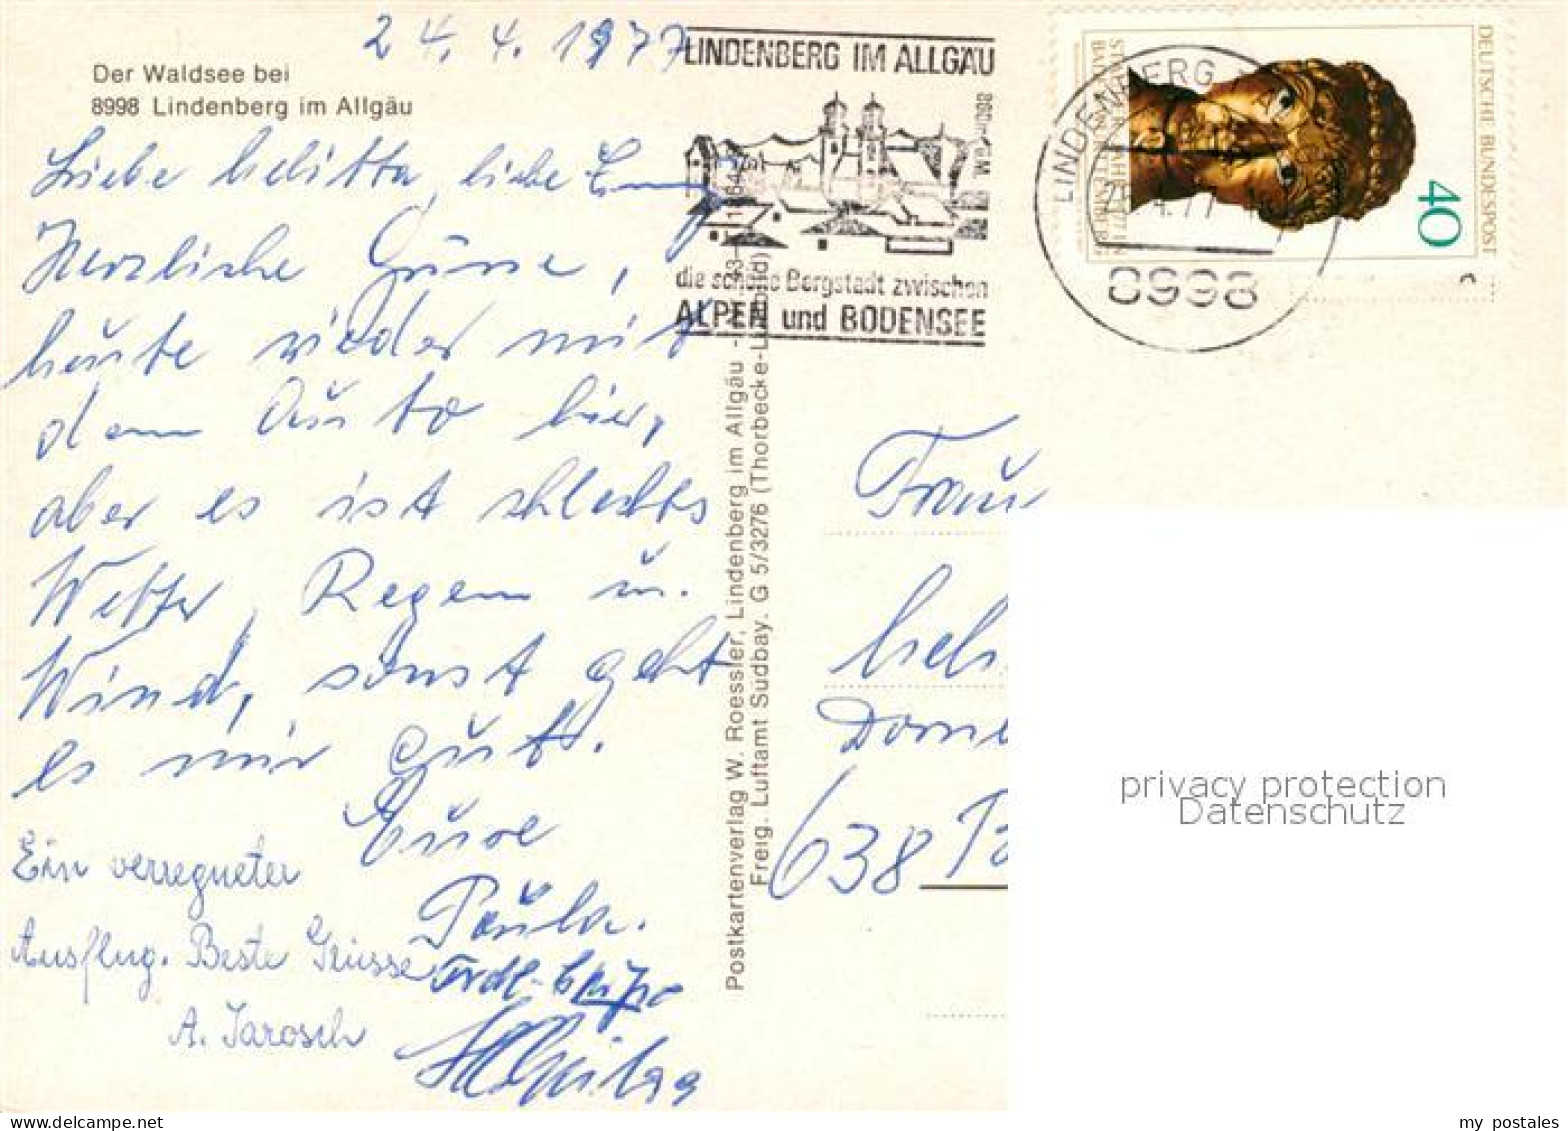 24.4.1977
Der Waldsee bei
8998 Lindenberg im Allgäu
Liebe Melitta, liebe
Herzliche Grüsse,
heute wieder mit
dem Auto hier,
aber es ist schlechtes
Wetter, Regen u.
Wind, sonst geht
es mir gut.
Eure
Paula.
Ein verregneter
Ausflug. Beste Grüsse
A. Jarosch
Frdl. Grüße
LINDENBERG IM ALLGÄU
die schöne Bergstadt zwischen
ALPEN und BODENSEE
Postkartenverlag W. Roessler, Lindenberg im Allgäu -
Freig. Luftamt Südbay. G 5/3276 (Thorbecke-Luftbild)
LINDENBERG
8998
DEUTSCHE BUNDESPOST
40
Frau
Mel
Dorn
638
privacy protection
Datenschutz
my postales